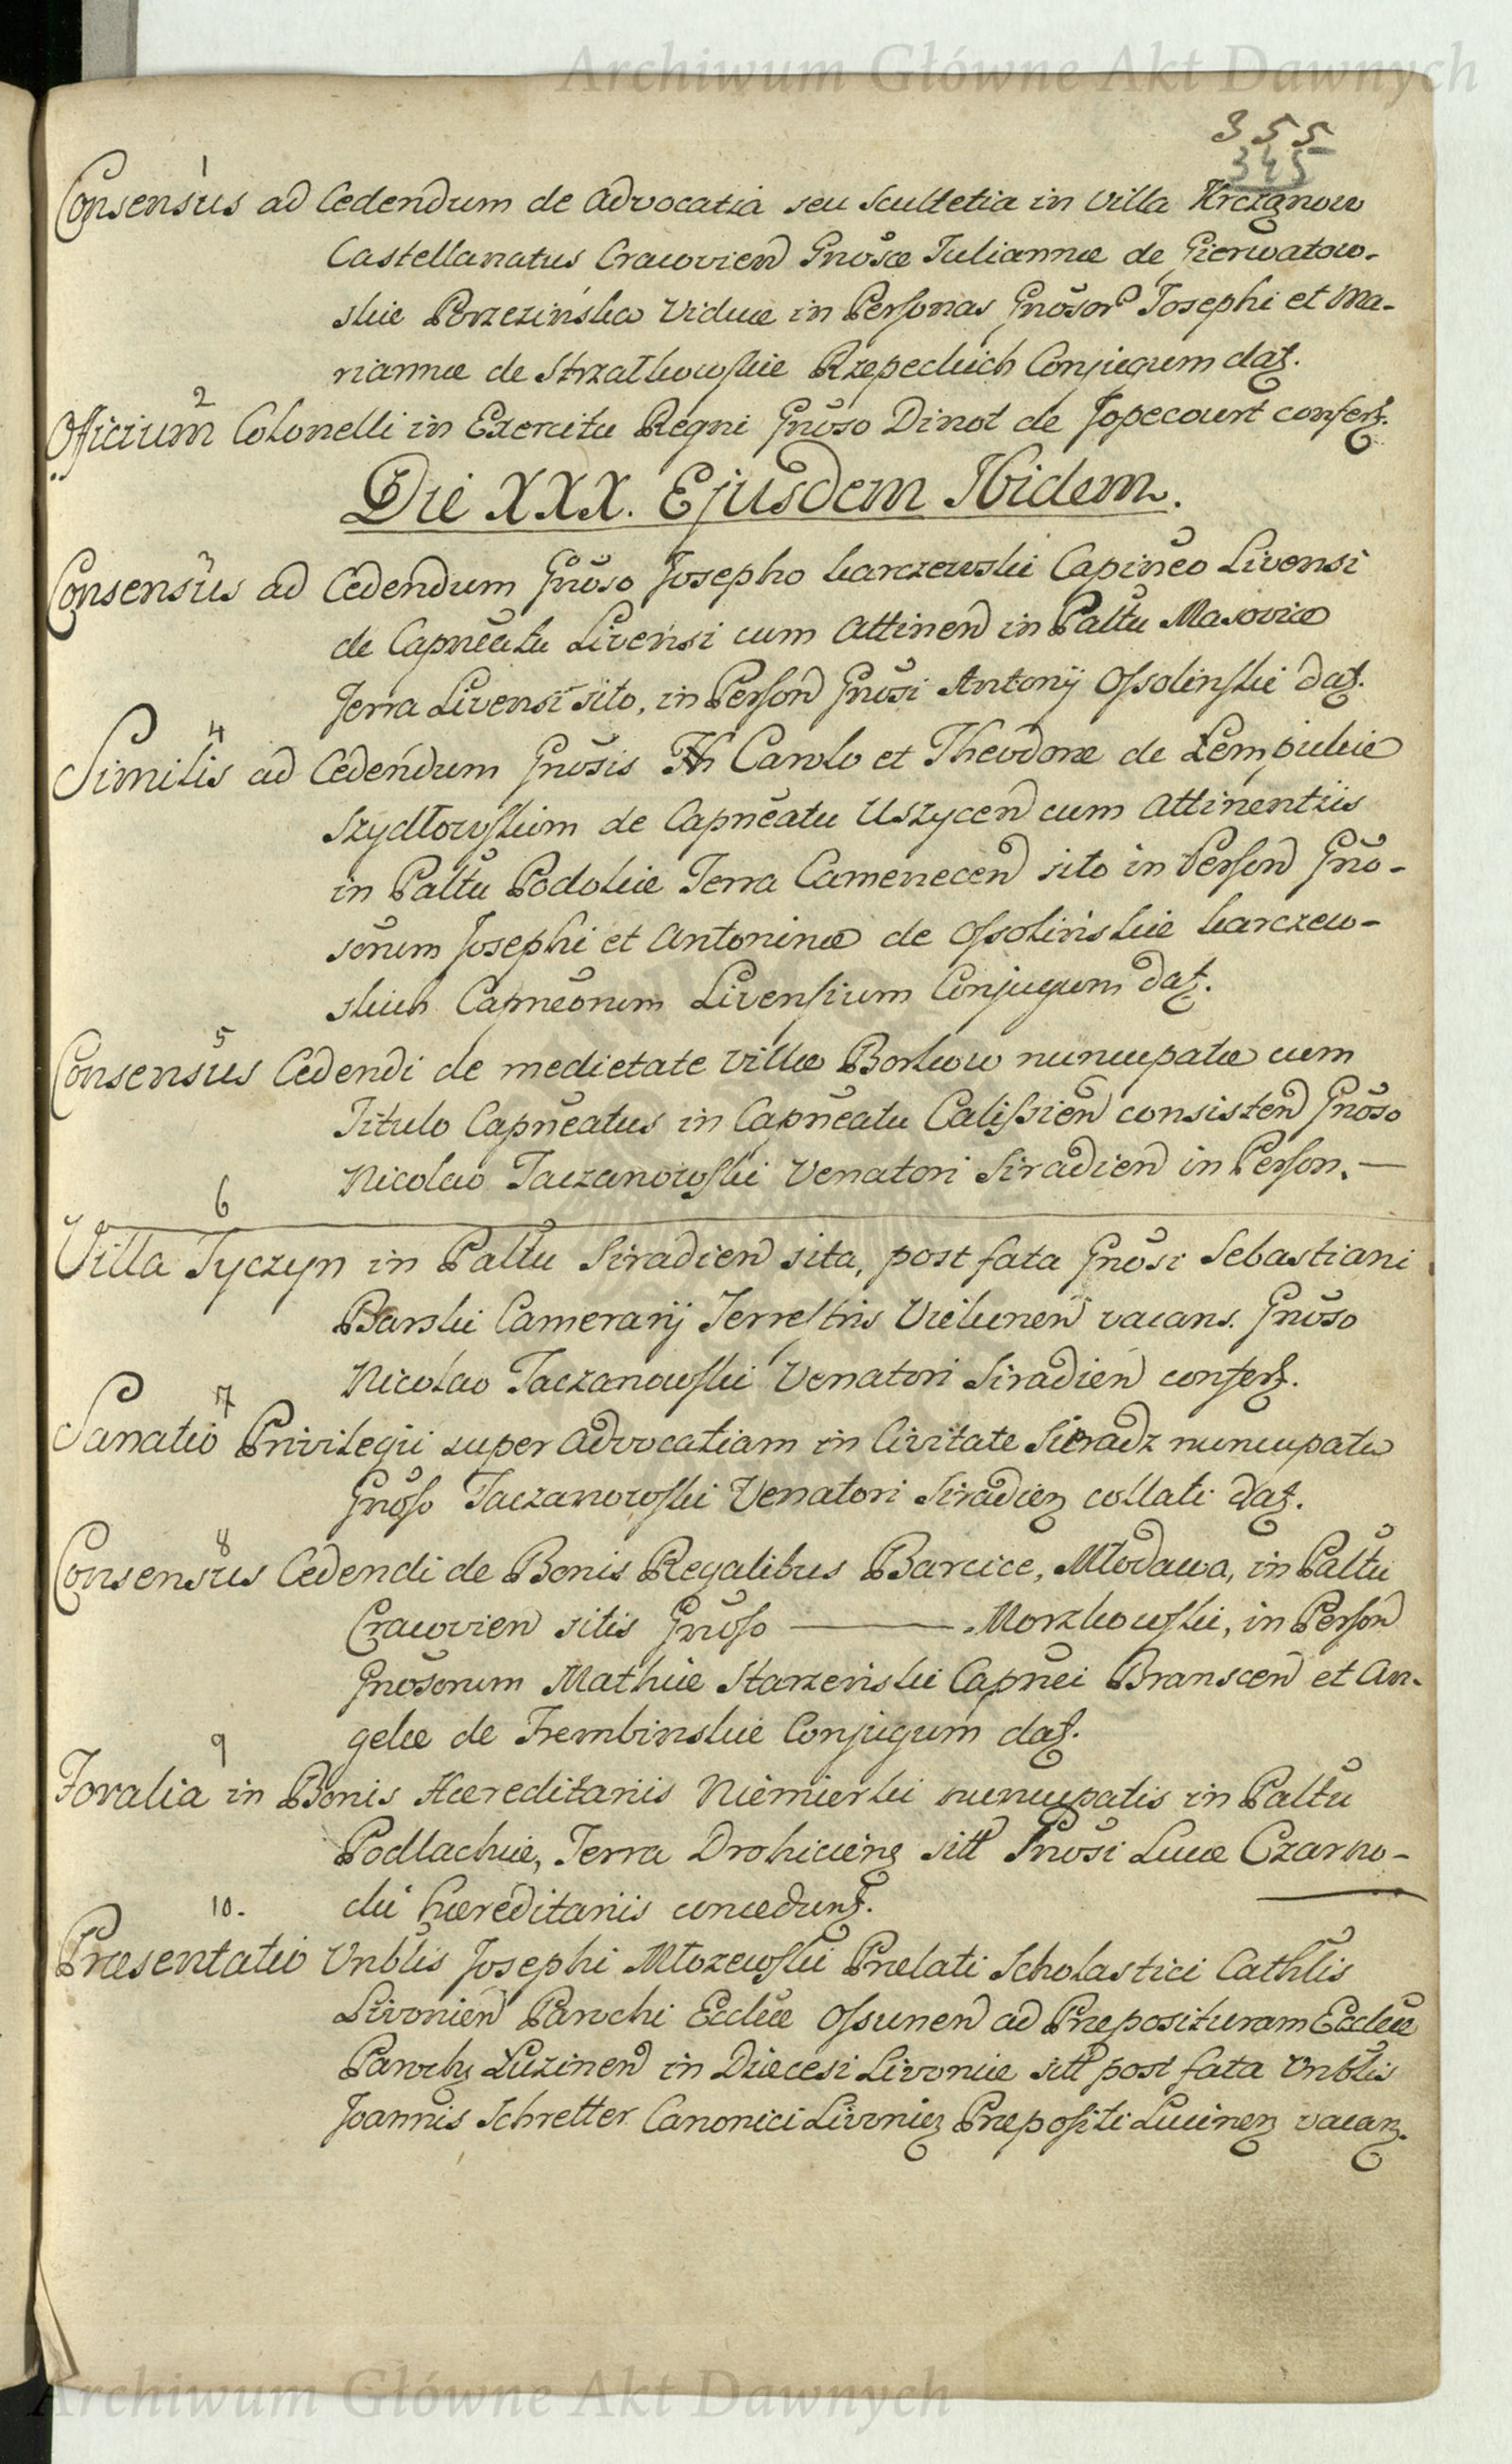 Archiwum Główne Akt Dawnych
355
345
1
Consensus ad Cedendum de Advocatia seu Scultetia in Villa Krczęnow
Castellanatus Cracovien Gnosæ Juliannæ de Gierwatow-
skie Brzezińska Viduæ in Personas Gnosor Josephi et Ma-
riannæ de Strzałkowskie Rzepeckich Conjugum dat.
2
Officium Colonelli in Exercitu Regni Gnoso Dinot de Jopecourt confert.
Die XXX. Ejusdem Ibidem.
3
Consensus ad Cedendum Gnoso Josepho Karczewski Capineo Livensi
de Capneatu Livensi cum Attinen in Paltu Masoviæ
Terra Livensi sito, in Person Gnosi Antonij Ossolinski dat.
4
Similis ad Cedendum Gnosis Carolo et Theodoræ de Łempickie
Szydłowskim de Capneatu Uszycen cum Attinentiis
in Paltu Podoliæ Terra Camenecen sito in Person Gno-
sorum Josephi et Antoninæ de Ossolińskie Karczew-
skich Capneorum Livensium Conjugum dat.
5
Consensus Cedendi de medietate Villæ Borkow nuncupatæ cum
Titulo Capneatus in Capneatu Calissien consisten Gnoso
Nicolao Taczanowski Venatori Siradien in Person. —
6
Villa Tyczyn in Paltu Siradien sita, post fata Gnosi Sebastiani
Barski Camerarij Terrestris Vielunen vacans. Gnoso
Nicolao Taczanowski Venatori Siradien confert.
7
Sanatio Privilegii super Advocatiam in Civitate Sieradz nuncupata
Gnoso Taczanowski Venatori Siradien collati dat.
8
Consensus Cedendi de Bonis Regalibus Barcice, Młodawa, in Paltu
Cracovien sitis Gnoso ——— Morzkowski, in Person
Gnosorum Mathiæ Starzeński Capnei Branscen et An-
gelæ de Trembinskie Conjugum dat.
9
Foralia in Bonis Hæreditariis Niemierki nuncupatis in Paltu
Podlachiæ, Terra Drohicien sitt Gnosi Lucæ Czarno-
cki hæreditariis conceduns.
10.
Præsentatio Vnblis Josephi Młozewski Prælati Scholastici Cathlis
Livonien Parochi Eccleæ Ossunen ad Præposituram Eccleæ
Parochs Luzinen in Diæcesi Livoniæ sitt post fata Vnblis
Joannis Schretter Canonici Livonien Præpositi Lucinen vacan.
Archiwum Główne Akt Dawnych